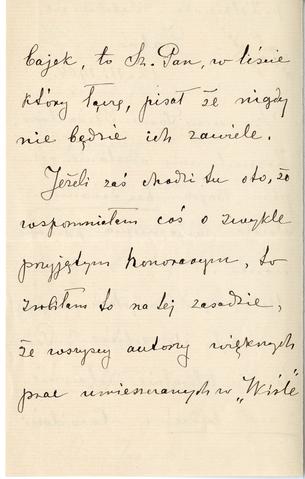 bajek, to Sz. Pan, w liście
który łączę, pisał że nigdy
nie będzie ich zawiele.
Jeżeli zaś chodzi tu oto, że
wspomniałem coś o zwykle
przyjętym honorowym, to
zrobiłam to na tej zasadzie,
że wszyscy autorzy większych
prac umieszczanych w „Wiśle"